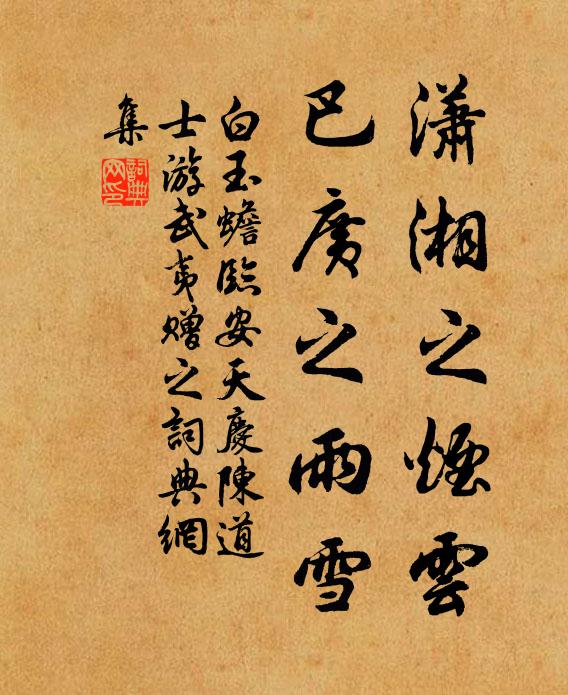 瀟湘之煙雲
巴廣之雨雪
白玉蟾臨安天慶陳道
士游武夷贈之詞典網
集
詞典網印